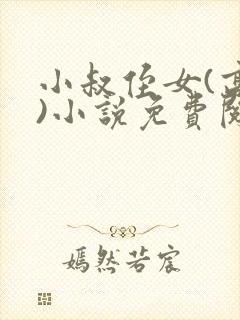 小叔侄女(高
)小說免費閱
嫣然若宸